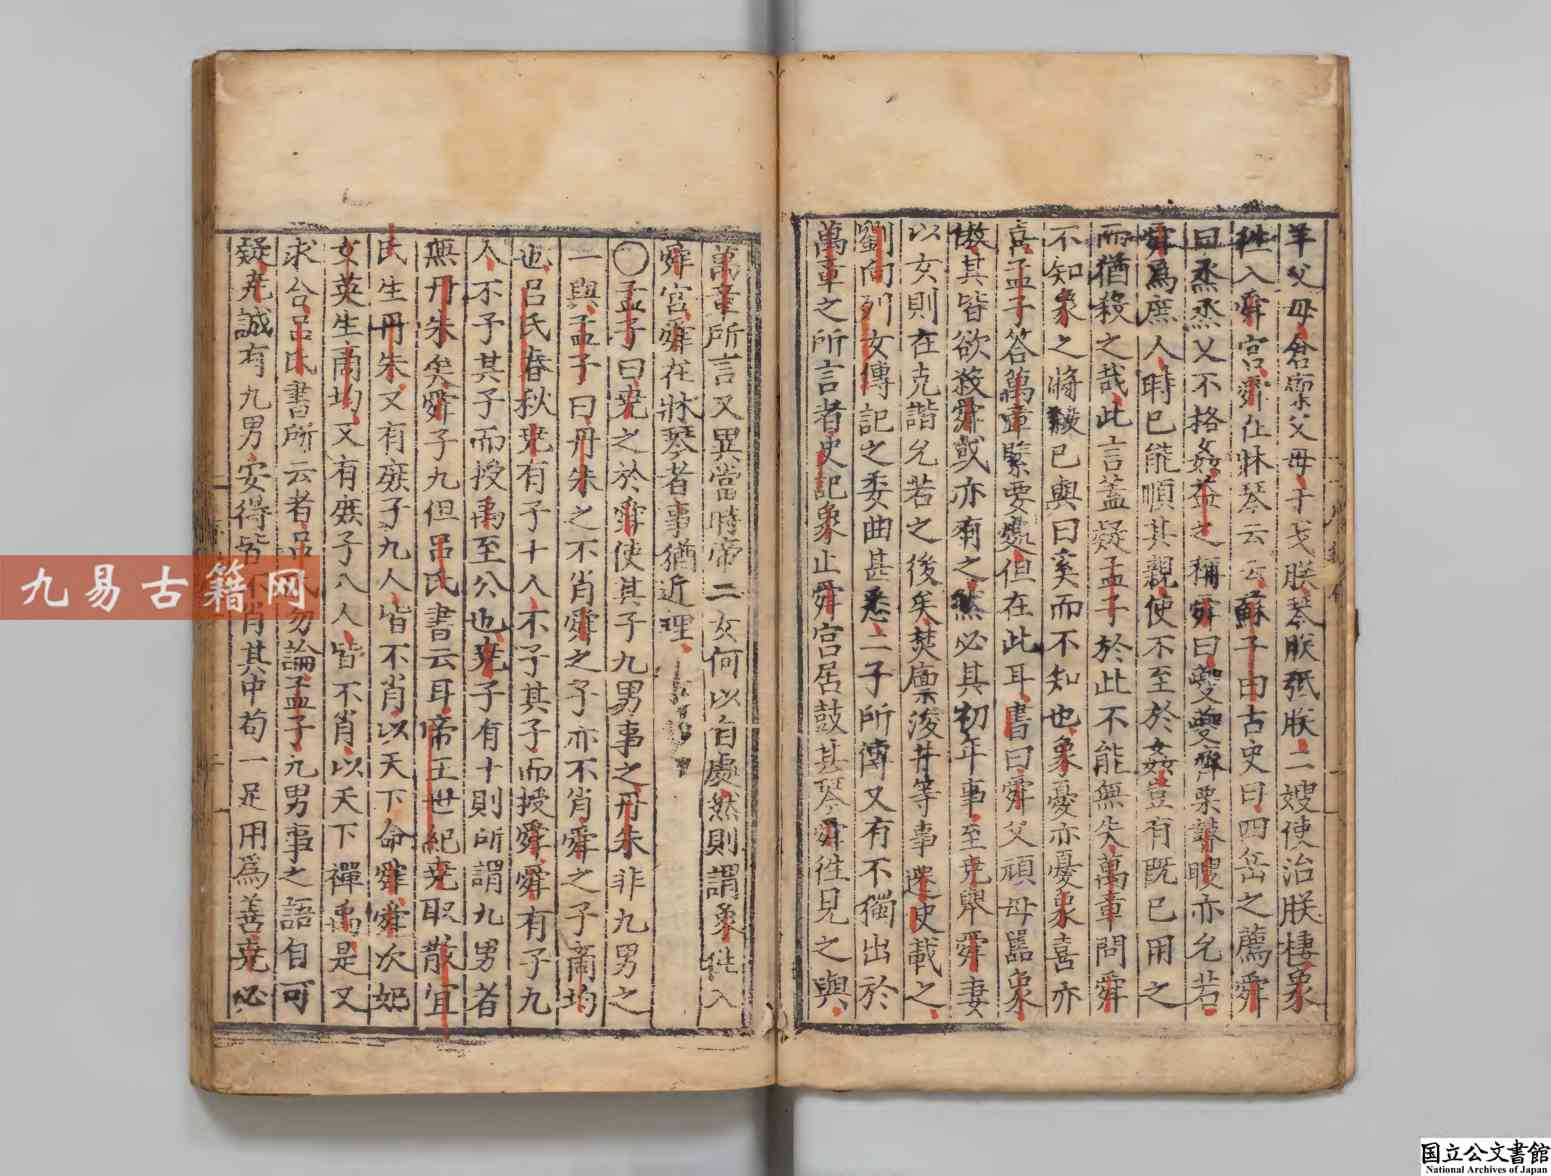 羊父母倉廩父母干戈朕琴朕弤朕二嫂使治朕棲象
往入舜宮舜在牀琴云云蘇子曰古史曰四岳之薦舜
曰烝烝乂不格姦益之稱舜曰夔夔齊栗瞽瞍亦允若
舜爲庶人時已能順其親使不至於姦豈有既已用之
而猶殺之哉此言蓋疑孟子於此不能無失萬章問舜
不知象之將殺已與曰奚而不知也象憂亦憂象喜亦
喜孟子答萬章緊要處但在此耳書曰舜父頑母嚚象
傲其皆欲殺舜或亦有之然必其初年事至堯舉舜妻
以女則在克諧允若之後矣焚廩浚井等事遷史載之
劉向列女傳記之委曲甚悉二子所傳又有不獨出於
萬章之所言者史記象止舜宮居鼓其琴舜往見之與
萬章所言又異當時帝二女何以自處然則謂象往入
舜宮舜在牀琴者事猶近理
〇孟子曰堯之於舜使其子九男事之丹朱非九男之
一與孟子曰丹朱之不肖舜之子亦不肖舜之子商均
也呂氏春秋堯有子十人不予其子而授舜舜有子九
人不予其子而授禹至公也堯子有十則所謂九男者
無丹朱矣舜子九但呂氏書云耳帝王世紀堯取散宜
氏生丹朱又有庶子九人皆不肖以天下命舜舜次妃
女英生商均又有庶子八人皆不肖以天下禪禹是又
求合呂氏書所云者呂氏勿論孟子九男事之語自可
疑堯誠有九男安得皆不肖其中苟一足用爲善堯必
九易古籍网
国立公文書館
National Archives of Japan